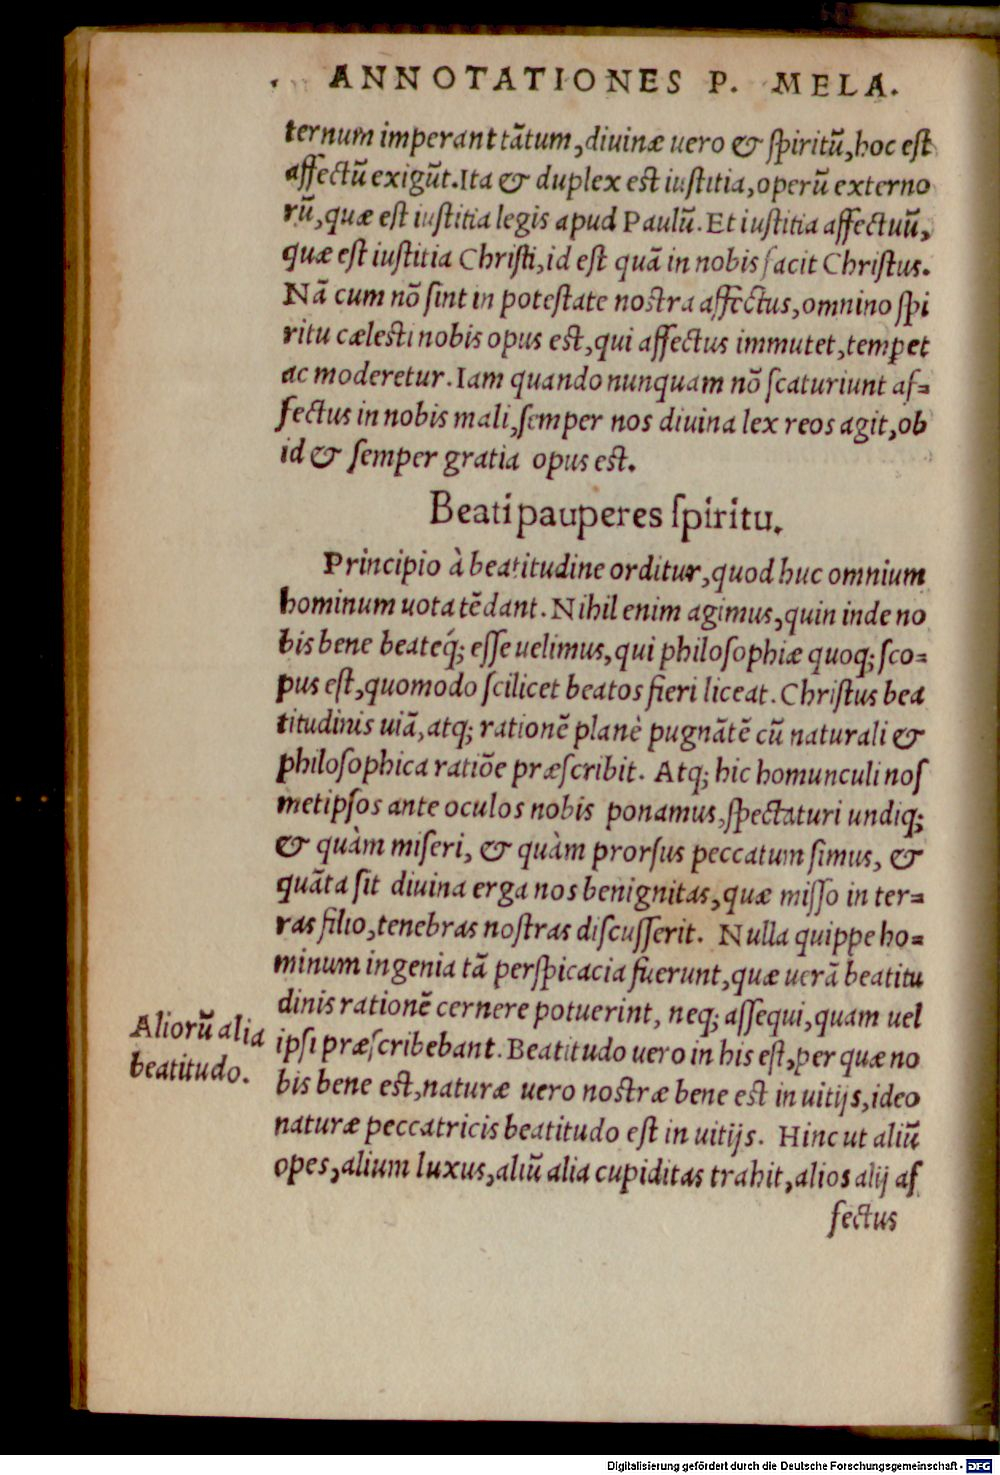 ANNOTATIONES P. MELA.
ternum imperant tātum, diuinæ uero & ſpiritū, hoc eſt
affectū exigūt. Ita & duplex eſt iuſtitia, operū externo
rū, quæ eſt iuſtitia legis apud Paulū. Et iuſtitia affectuū,
quæ eſt iuſtitia Chriſti, id eſt quā in nobis facit Chriſtus.
Nā cum nō ſint in poteſtate noſtra affectus, omnino ſpi
ritu cæleſti nobis opus eſt, qui affectus immutet, temperet
ac moderetur. Iam quando nunquam nō ſcaturiunt af=
fectus in nobis mali, ſemper nos diuina lex reos agit, ob
id & ſemper gratia opus eſt.
Beati pauperes ſpiritu.
Principio à beatitudine orditur, quod huc omnium
hominum uota tēdant. Nihil enim agimus, quin inde no
bis bene beateq́; eſſe uelimus, qui philoſophiæ quoq; ſco=
pus eſt, quomodo ſcilicet beatos fieri liceat. Chriſtus bea
titudinis uiā, atq; rationē planè pugnātē cū naturali &
philoſophica ratiōe præſcribit. Atq; hic homunculi noſ
metipſos ante oculos nobis ponamus, ſpectaturi undiq;
& quàm miſeri, & quàm prorſus peccatum ſimus, &
quāta ſit diuina erga nos benignitas, quæ miſſo in ter=
ras filio, tenebras noſtras diſcuſſerit. Nulla quippe ho=
minum ingenia tā perſpicacia fuerunt, quæ uerā beatitu
dinis rationē cernere potuerint, neq; aſſequi, quam uel
Aliorū alia
beatitudo.
ipſi præſcribebant. Beatitudo uero in his eſt, per quæ no
bis bene eſt, naturæ uero noſtræ bene eſt in uitijs, ideo
naturæ peccatricis beatitudo eſt in uitijs. Hinc ut aliū
opes, alium luxus, aliū alia cupiditas trahit, alios alij af
fectus
Digitalisierung gefördert durch die Deutsche Forschungsgemeinschaft - DFG